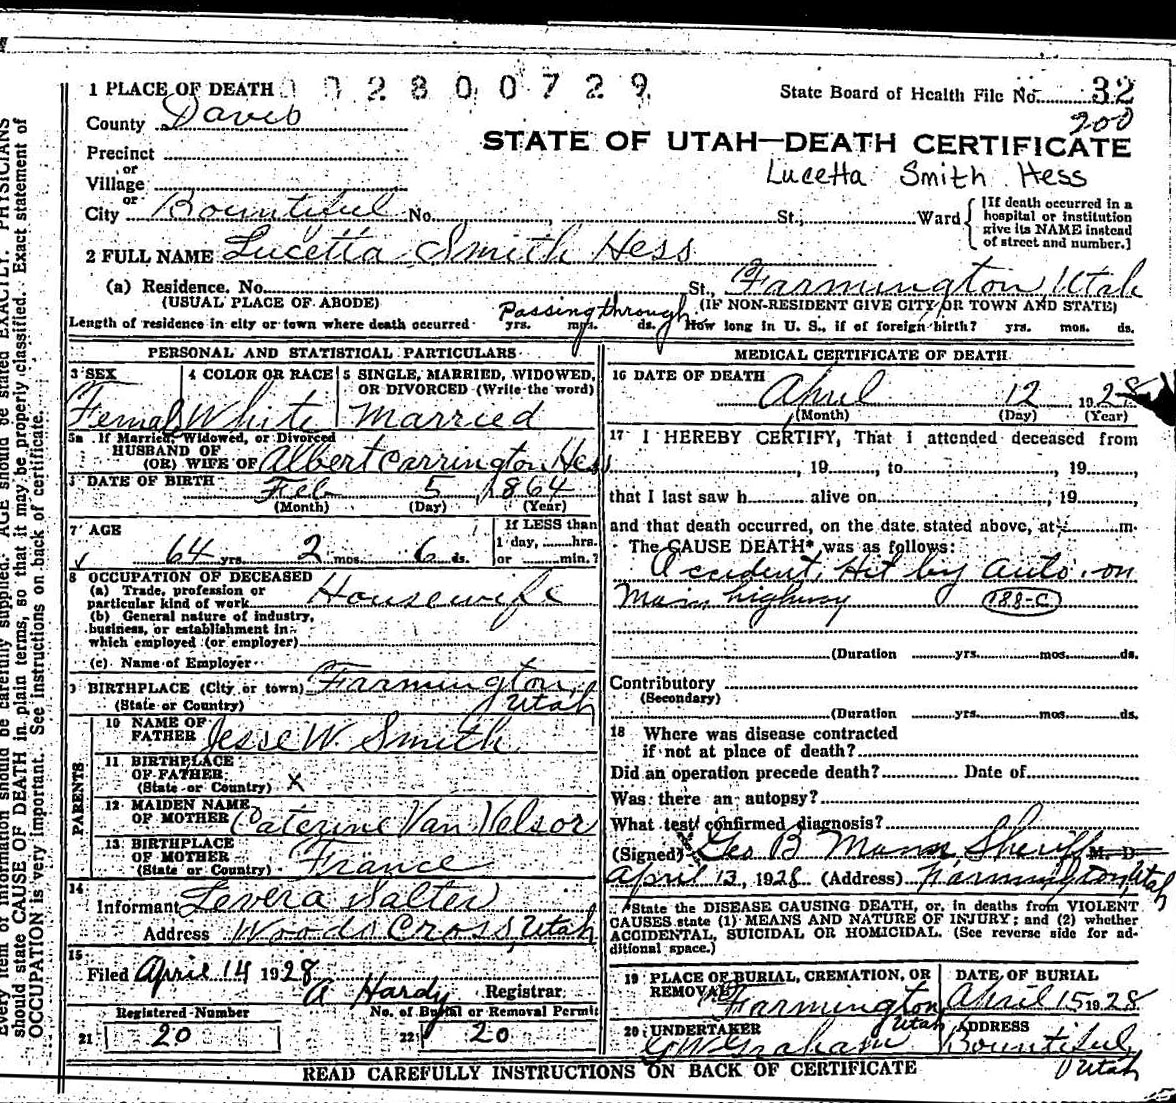 1 PLACE OF DEATH 0 0 2 8 0 0 7 2 9
State Board of Health File No. 32
County Davis
200
STATE OF UTAH—DEATH CERTIFICATE
Precinct
or
Village
Lucetta Smith Hess
or
City Bountiful No. , St.; Ward
[If death occurred in a
hospital or institution
give its NAME instead
of street and number.]
2 FULL NAME Lucetta Smith Hess
(a) Residence. No. St., Farmington, Utah
(USUAL PLACE OF ABODE) (IF NON-RESIDENT GIVE CITY OR TOWN AND STATE)
Passing through
Length of residence in city or town where death occurred yrs. mos. ds. How long in U. S., if of foreign birth? yrs. mos. ds.
PERSONAL AND STATISTICAL PARTICULARS
3 SEX 4 COLOR OR RACE 5 SINGLE, MARRIED, WIDOWED,
OR DIVORCED (Write the word)
Female White Married
5a If Married, Widowed, or Divorced
HUSBAND OF
(OR) WIFE OF Albert Carrington Hess
DATE OF BIRTH Feb 5, 1864
(Month) (Day) (Year)
7 AGE If LESS than
1 day, hrs.
64 yrs. 2 mos. 6 ds. or min.?
8 OCCUPATION OF DECEASED
(a) Trade, profession or
particular kind of work Housewife
(b) General nature of industry,
business, or establishment in
which employed (or employer)
(c) Name of Employer
9 BIRTHPLACE (City or town) Farmington,
(State or Country) Utah
PARENTS
10 NAME OF
FATHER Jesse W. Smith
11 BIRTHPLACE
OF FATHER
(State or Country) X
12 MAIDEN NAME
OF MOTHER Caterine Van Velsor
13 BIRTHPLACE
OF MOTHER
(State or Country) France
14
Informant Levera Salter
Address Woods Cross, Utah
15
Filed April 14 1928
A Hardy Registrar
Registered Number No. of Burial or Removal Permit
21 20 22 20
MEDICAL CERTIFICATE OF DEATH
16 DATE OF DEATH
April 12 1928
(Month) (Day) (Year)
17 I HEREBY CERTIFY, That I attended deceased from
, 19 , to , 19 ,
that I last saw h alive on , 19 ,
and that death occurred, on the date stated above, at m.
The CAUSE DEATH* was as follows:
Accident, Hit by auto. on
Main highway 188-C
(Duration yrs. mos. ds.
Contributory
(Secondary)
(Duration yrs. mos. ds.
18 Where was disease contracted
if not at place of death?
Did an operation precede death? Date of
Was there an autopsy?
What test confirmed diagnosis?
(Signed) Geo B Mann Sheriff M. D.
April 13, 1928 (Address) Farmington, Utah
*State the DISEASE CAUSING DEATH, or, in deaths from VIOLENT
CAUSES state (1) MEANS AND NATURE OF INJURY; and (2) whether
ACCIDENTAL, SUICIDAL OR HOMICIDAL. (See reverse side for ad-
ditional space.)
19 PLACE OF BURIAL, CREMATION, OR
REMOVAL
Farmington
Utah
DATE OF BURIAL
April 15 1928
20 UNDERTAKER
G W Graham
ADDRESS
Bountiful
Utah
READ CAREFULLY INSTRUCTIONS ON BACK OF CERTIFICATE
Every item of information should be carefully supplied. AGE should be stated EXACTLY. PHYSICIANS
should state CAUSE OF DEATH in plain terms, so that it may be properly classified. Exact statement of
OCCUPATION is very important. See instructions on back of certificate.